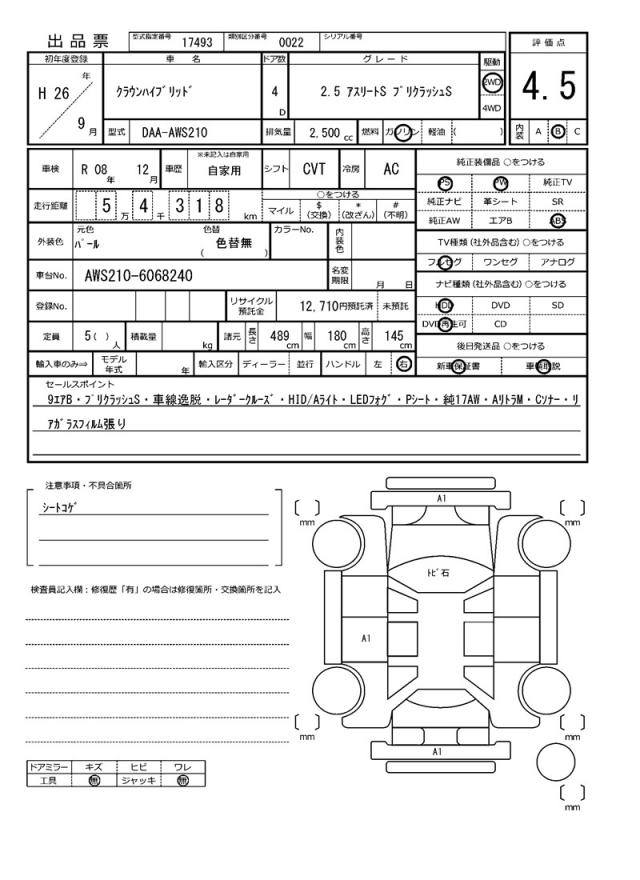 出品票
型式指定番号 17493 類別区分番号 0022 シリアル番号
初年度登録 車名 ドア数 グレード 駆動 評価点
H 26 年 9 月
クラウンハイブリッド 4 D 2.5 アスリートS プリクラッシュS 2WD 4WD
4.5
型式 DAA-AWS210 排気量 2,500 cc 燃料 ガソリン 軽油 ( )
内装 A B C
車検 R 08 年 12 月 車歴 ※未記入は自家用 自家用 シフト CVT 冷房 AC
純正装備品 ○をつける
PS PW 純正TV
純正ナビ 革シート SR
純正AW エアB ABS
走行距離 5 万 4 千 3 1 8 km
○をつける
マイル $(交換) *(改ざん) #(不明)
TV種類(社外品含む)○をつける
フルセグ ワンセグ アナログ
外装色 元色 パール 色替 ( 色替無 ) カラーNo. 内装色
車台No. AWS210-6068240 名変期限 月 日
ナビ種類(社外品含む)○をつける
HDD DVD SD
DVD再生可 CD
登録No. リサイクル預託金 12,710円預託済 未預託
定員 5( ) 人 積載量 kg 諸元 長さ 489 cm 幅 180 cm 高さ 145 cm
後日発送品 ○をつける
新車保証書 車輌取説
輸入車のみ⇒ モデル年式 年 輸入区分 ディーラー 並行 ハンドル 左 右
セールスポイント
9エアB・プリクラッシュS・車線逸脱・レーダークルーズ・HID/Aライト・LEDフォグ・Pシート・純17AW・AリトラM・Cソナー・リ
アガラスフィルム張り
注意事項・不具合箇所
シートコゲ
検査員記入欄:修復歴「有」の場合は修復箇所・交換箇所を記入
A1
mm mm
トビ石
A1
mm mm
A1
mm
ドアミラー キズ ヒビ ワレ
工具 無 ジャッキ 無